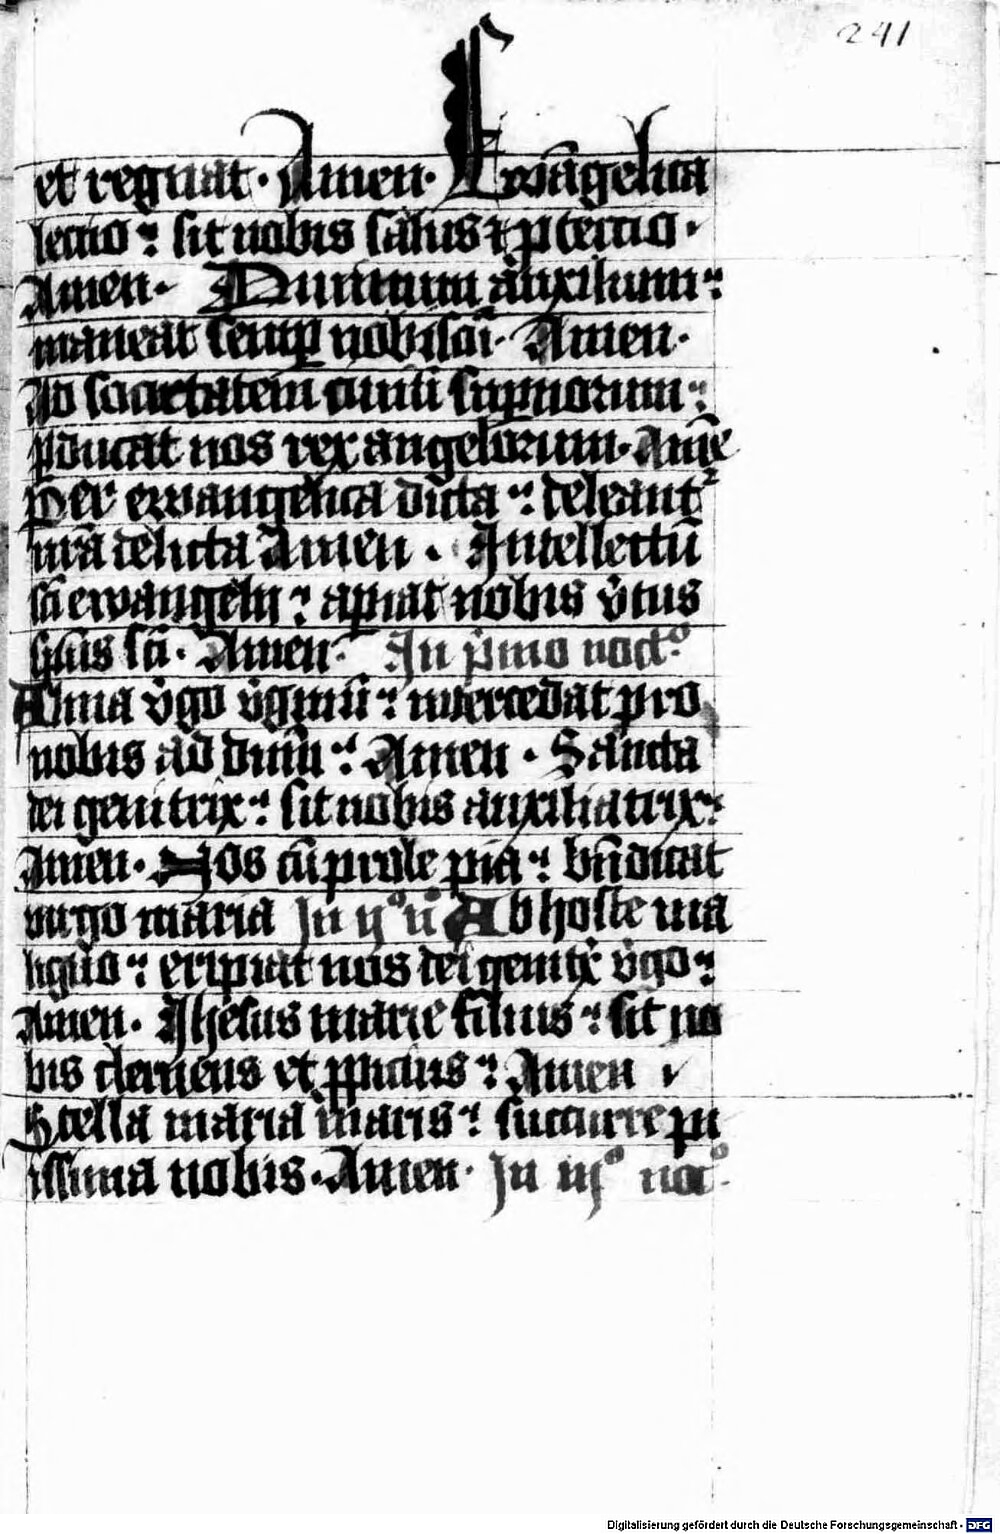 241
et regnat. Amen. Ewāgelica
lectio : sit nobis salus ⁊ ꝓtectio.
Amen. Diuinum auxilium :
maneat semꝑ nobiscū. Amen.
Ad societatem ciuiū suꝑnorum :
ꝑducat nos rex angelorum. Amē
Per ewangelica dicta : deleant᷑
nr̄a delicta Amen. Intellectū
sc̄i ewangelij : aꝑiat nobis v̓tus
sp̄us sc̄i. Amen. In p̓mo noct̊
Alma v̓go v̓ginū : intercedat pro
nobis ad dn̄m : Amen. Sancta
dei genitrix : sit nobis auxiliatrix :
Amen. Nos cū prole pia : bn̄dicat
uirgo maria In ij̊ n̊ Ab hoste ma
ligno : eripiat nos dei genit̓x v̓go :
Amen. Jhesus marie filius : sit no
bis clemens et ꝓpicius : Amen
Stella maria maris : succurre pii
issima nobis. Amen. In iij̊ noc̊.
Digitalisierung gefördert durch die Deutsche Forschungsgemeinschaft - DFG